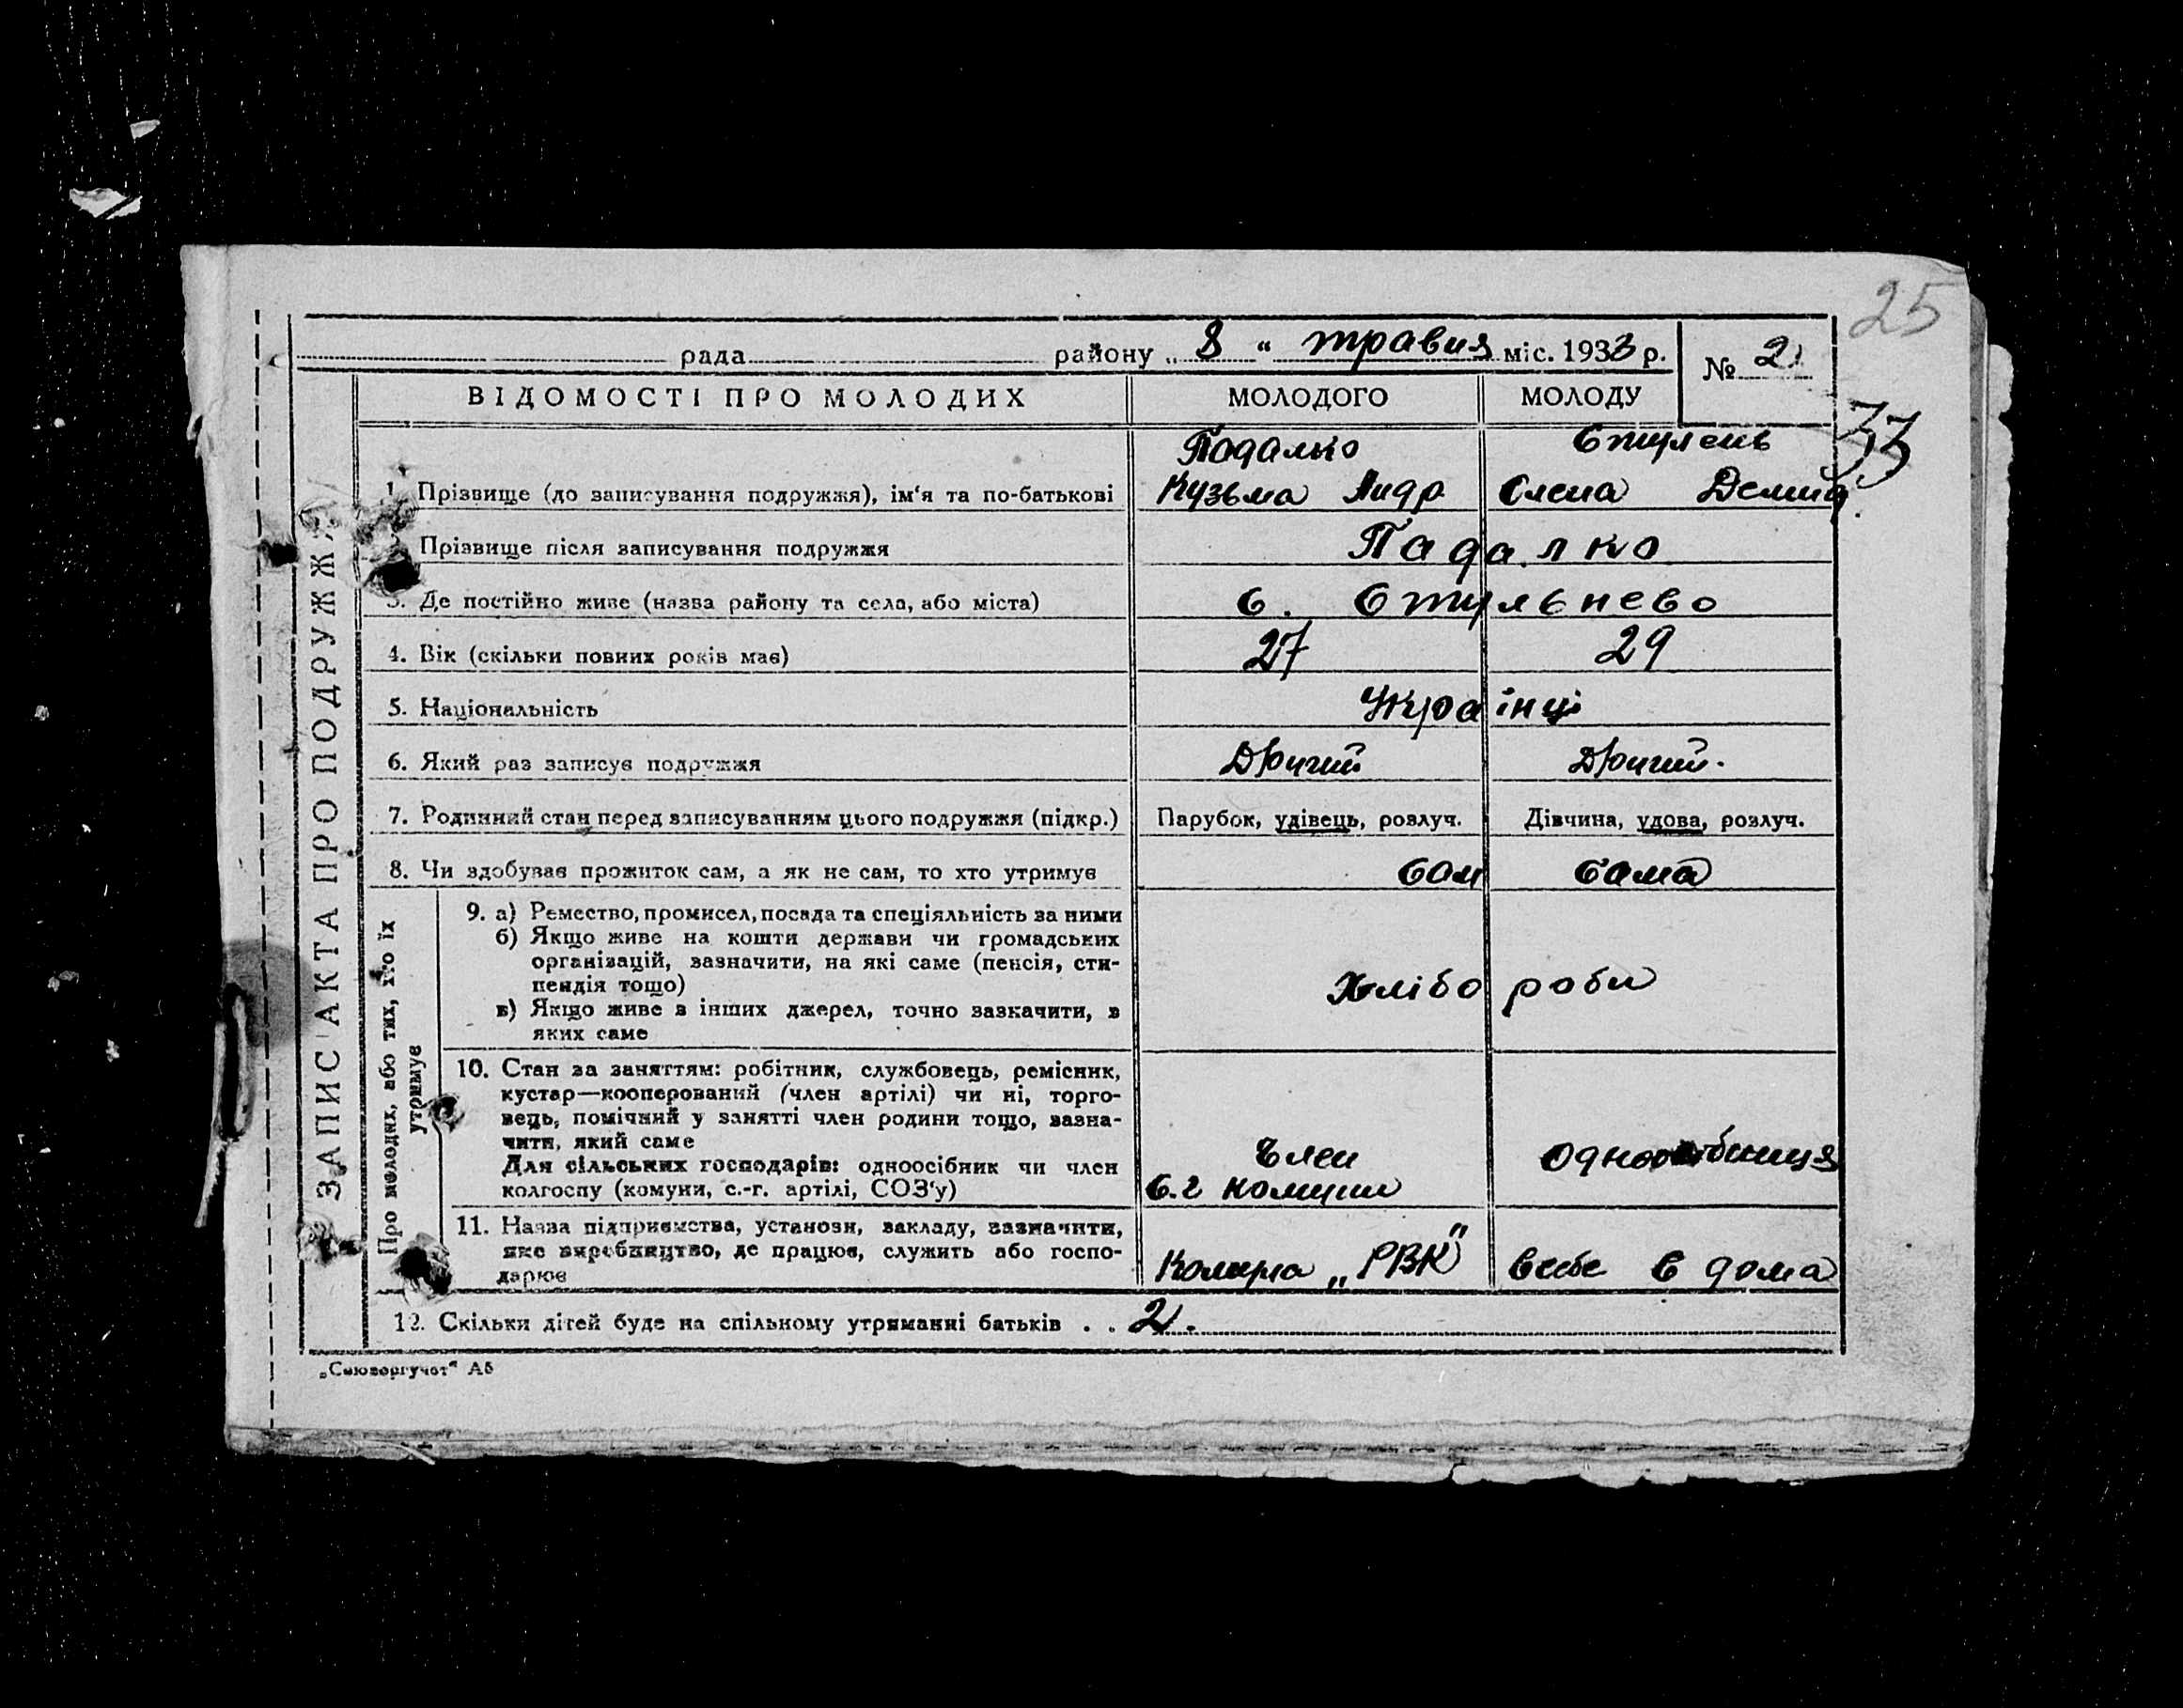 25
рада районy „ 8 “ травня міс. 1933 р. № 2
33
ВІДОМОСТІ ПРО МОЛОДИХ МОЛОДОГО МОЛОДУ
Падалко Стулень
1. Прізвище (до записування подружжя), ім‘я та по-батькові Кузьма Андр Олена Демид
Прізвище після записування подружжя Падалко
3. Де постійно живе (назва району та села, або міста) с. Стульнево
4. Вік (скільки повних років має) 27 29
5. Національність Украінці
6. Який раз записує подружжя Другий Другий.
7. Родинний стан перед записуванням цього подружжя (підкр.) Парубок, удівець, розлуч. Дівчина, удова, розлуч.
8. Чи здобуває прожиток сам, а як не сам, то хто утримує сам сама
9. а) Ремество, промисел, посада та спеціяльність за ними
б) Якщо живе на кошти держави чи громадських
організацій, зазначити, на які саме (пенсія, сти-
пендія тощо)
в) Якщо живе з інших джерел, точно зазкачити, з
яких саме
Хлібороби
10. Стан за заняттям: робітник, службовець, ремісник,
кустар—кооперований (член артілі) чи ні, торго-
вець, помічний у занятті член родини тощо, вазна-
чити, який саме
Для сільських господарів: одноосібник чи член
колгоспу (комуни, с.-г. артілі, СОЗ‘у)
Член
с.г комуни
одноосібниця
11. Назва підприємства, установи, закладу, зазначити,
яке виробництво, де працює, служить або госпо-
дарює
Комуна „РВК“ в себе в дома
12. Скільки дітей буде на спільному утриманні батьків . . 2.
ЗАПИС АКТА ПРО ПОДРУЖЖЯ
Про молодих, або тих, хто їх
утримує
„Союзоргучет“ А5